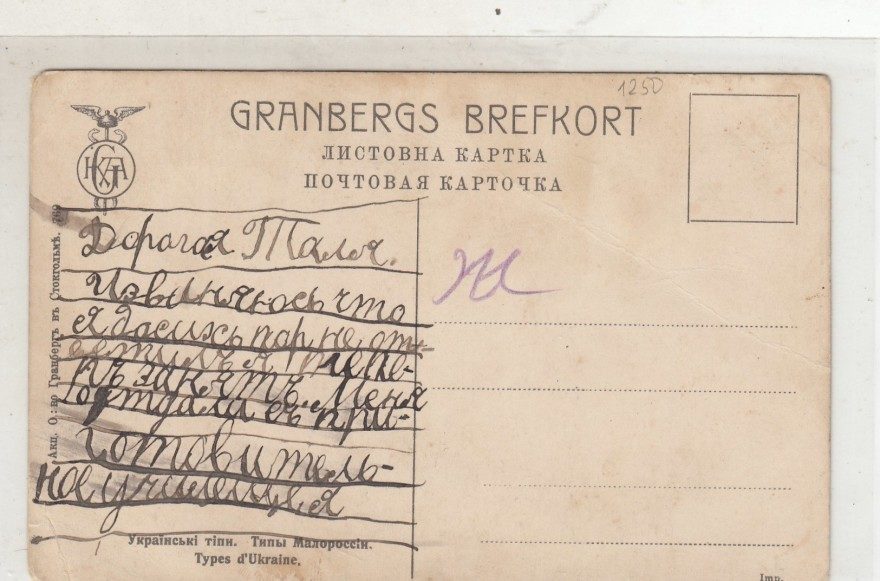 1250
GRANBERGS BREFKORT
ЛИСТОВНА КАРТКА
ПОЧТОВАЯ КАРТОЧКА
Акц. О:во Гранбергъ въ Стокгольмѣ.
Дорогая Таля.
Извиняюсь что
я досихъ пор не от-
ветилъ я
къ занятъ. Меня
отдали въ при-
готовитель-
ная училеща
Українські тіпи. Типы Малороссіи.
Types d'Ukraine.
Imp.